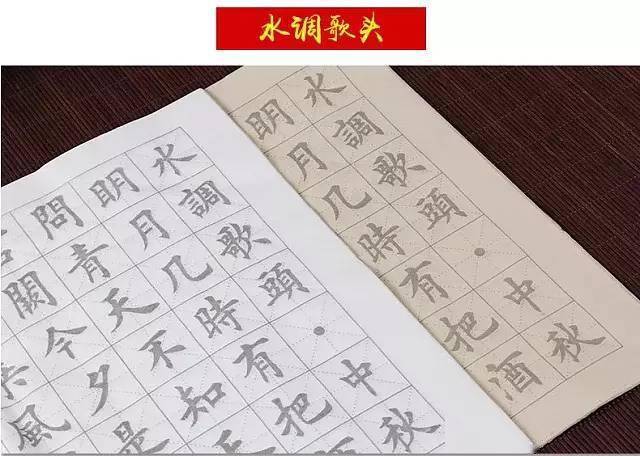 水调歌头
水調歌頭·中秋
明月几時有把
問青天不知天
闕今夕是
風
水調歌頭·中秋
明月几時有把酒